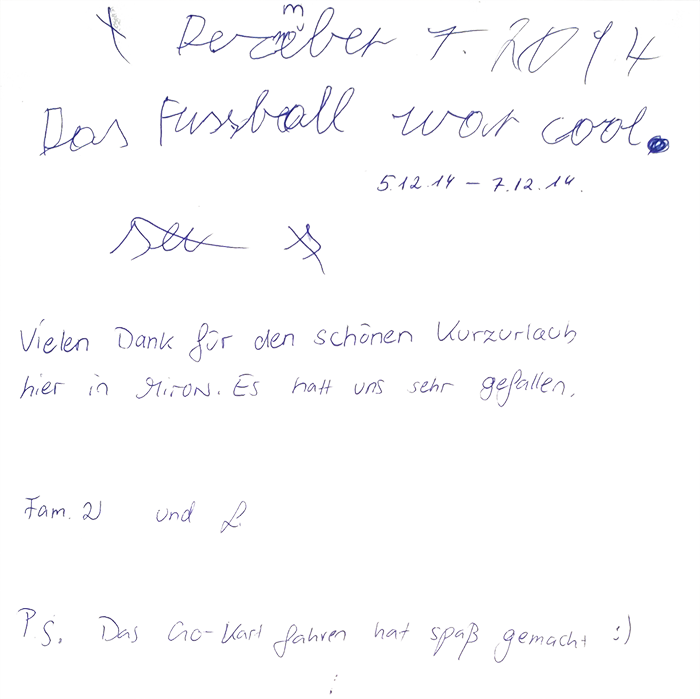 Dezember 7. 2014
Das Fussball war cool.
5.12.14 – 7.12.14.
Vielen Dank für den schönen Kurzurlaub
hier in Miron. Es hatt uns sehr gefallen.
Fam. W und L
P.S. Das Go-Kart fahren hat spaß gemacht :)